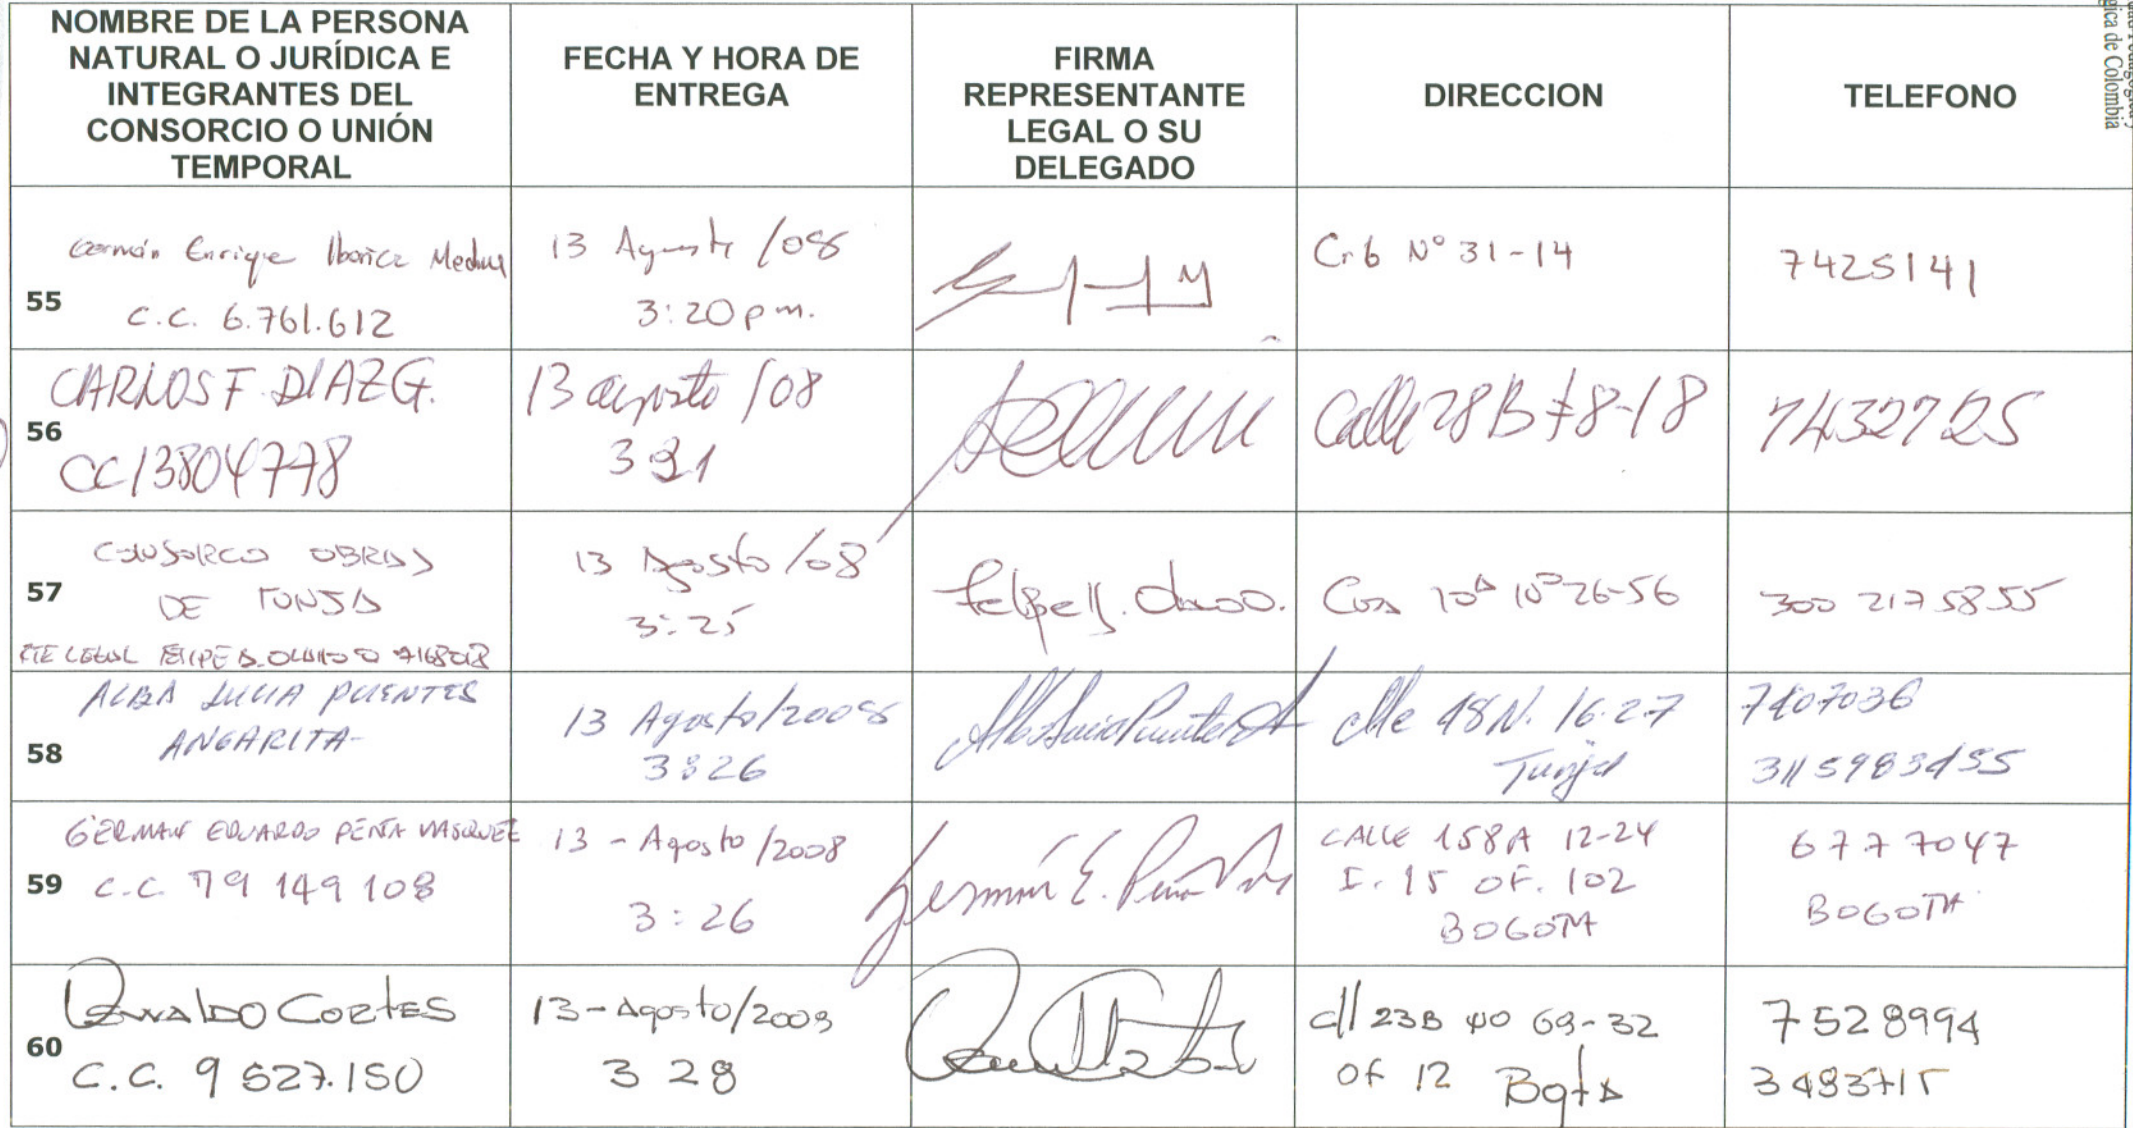 gica de Colombia
NOMBRE DE LA PERSONA
NATURAL O JURÍDICA E
INTEGRANTES DEL
CONSORCIO O UNIÓN
TEMPORAL
FECHA Y HORA DE
ENTREGA
FIRMA
REPRESENTANTE
LEGAL O SU
DELEGADO
DIRECCION
TELEFONO
55
Germán Enrique Medina
C.C. 6.761.612
13 Agosto /08
3:20 pm.
Cr 6 Nº 31-14
7425141
56
CARLOS F. DIAZ G.
CC 13804778
13 agosto /08
3 21
Calle 28B # 8-18
7432725
57
CONSORCO OBRAS
DE TUNJA
RTE LEGAL FELIPE
13 Agosto /08
3:25
Felipe
26-56
300 2175855
58
ALBA LUCIA PUENTES
ANGARITA
13 Agosto/2008
3:26
Alba Lucia Puentes A
Clle 48 N. 16-27
Tunja
7407036
3115983455
59
GERMAN EDUARDO PEÑA VASQUEZ
C.C 79 149 108
13 - Agosto /2008
3:26
Germán E. Peña
CALLE 158A 12-24
I. 15 OF. 102
BOGOTA
6777047
BOGOTA
60
CORTES
C.C. 9 527.150
13-Agosto/2008
3 28
cll 23B no 69-32
of 12 Bgta
7528994
3483715